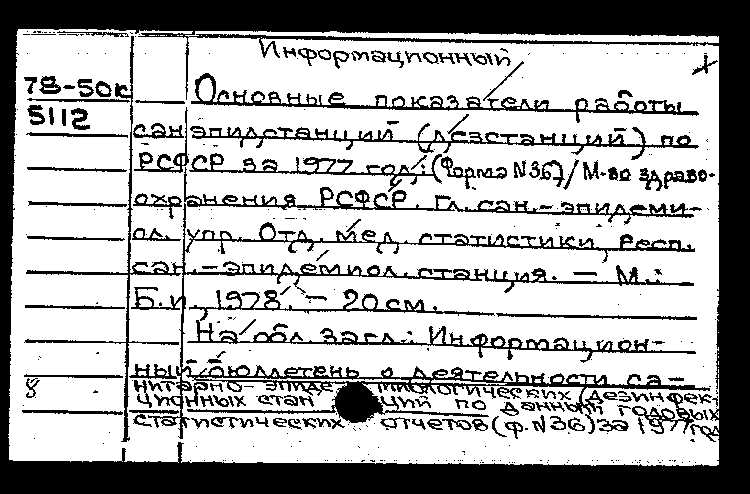 Информационный
78-50к Основные показатели работы
5112 санэпидстанций (дезстанций) по
РСФСР за 1977 год: (Форма N36) / М-во здраво-
охранения РСФСР. Гл. сан.-эпидеми-
ол. упр. Отд. мед. статистики, Респ.
сан.-эпидемиол. станция. — М.:
Б.и., 1978. — 20см.
На обл. загл.: Информацион-
ный бюллетень о деятельности са-
8 нитарно-эпидемиологических (дезинфек-
ционных станций по данным годовых
статистических отчетов (ф. N36) за 1977 год